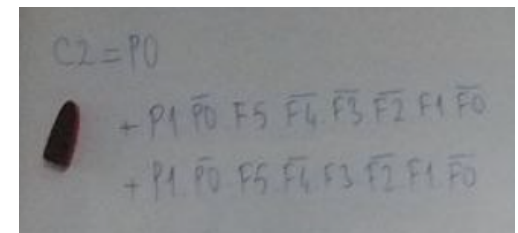 C2 = P0
+ P1 P̅0̅ F5 F̅4̅ F̅3̅ F̅2̅ F1 F̅0̅
+ P1. P̅0̅ F5. F̅4̅ F3 F̅2̅. F1. F̅0̅